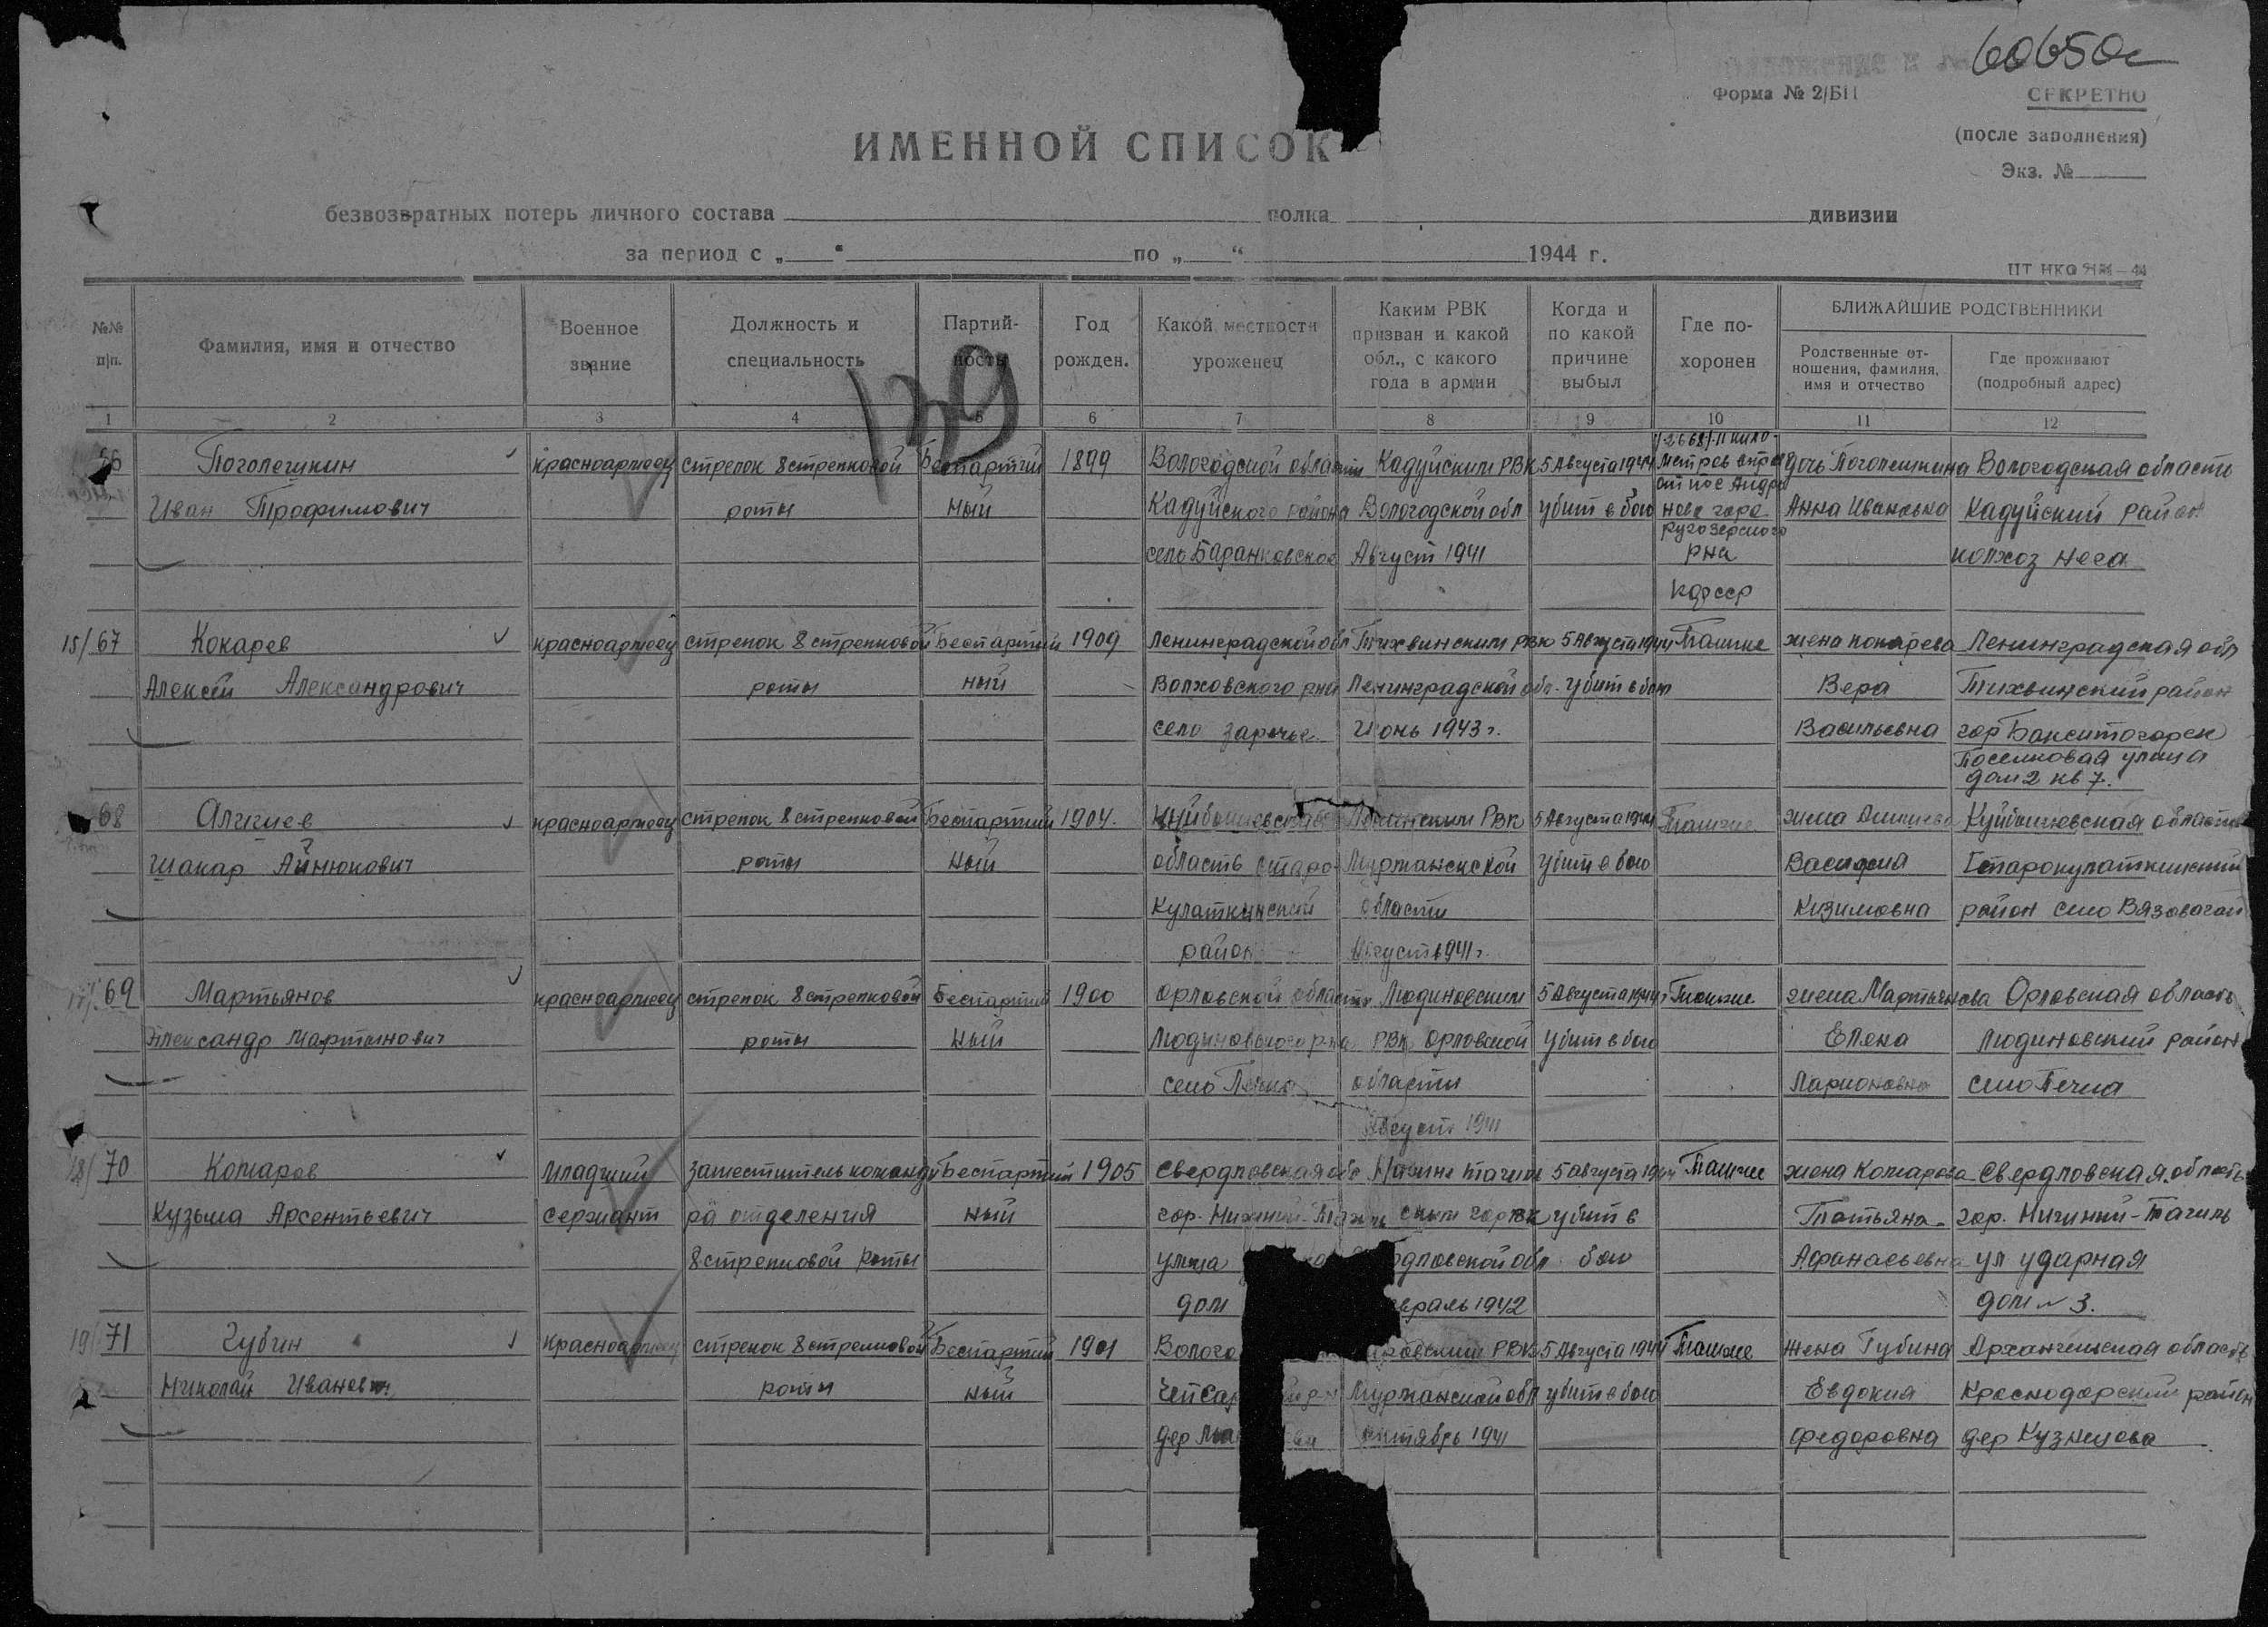 60650с
Форма № 2/БП
СЕКРЕТНО
(после заполнения)
Экз. №
ИМЕННОЙ СПИСОК
безвозвратных потерь личного состава полка дивизии
за период с „ “ по „ “ 1944 г.
№№ п/п.
Фамилия, имя и отчество
Военное звание
Должность и специальность
Партийность
Год рожден.
Какой местности уроженец
Каким РВК призван и какой обл., с какого года в армии
Когда и по какой причине выбыл
Где похоронен
БЛИЖАЙШИЕ РОДСТВЕННИКИ
Родственные отношения, фамилия, имя и отчество
Где проживают (подробный адрес)
1 2 3 4 5 6 7 8 9 10 11 12
139
66 Поголешкин красноармеец стрелок 8 стрелковой Беспартий 1899 Вологодской области Кадуйским РВК 5 Августа 1944 дочь Поголешкина Вологодская область
Иван Трофимович роты ный Кадуйского района Вологодской обл убит в бою Анна Ивановна Кадуйский район
село Баранковское Август 1941 рна колхоз
15/67 Кокарев красноармеец стрелок 8 стрелковой Беспартий 1909 Ленинградской обл Тихвинским РВК 5 Августа 1944 Также жена Кокарева Ленинградская обл
Алексей Александрович роты ный Волховского рна Ленинградской обл. убит в бою Вера Тихвинский район
село Заречье Июнь 1943 г. Васильевна гор Бокситогорск
Поселковая улица
дом 2 кв 7.
68 красноармеец стрелок 8 стрелковой Беспартий 1904. РВК 5 Августа 1944 Также жена Куйбышевская область
Шакар Айнюкович роты ный область старо Мурманской убит в бою Старокулаткинский
Кулаткинский области Кизимовна район село
район Август 1941 г.
69 Мартьянов красноармеец стрелок 8 стрелковой Беспартий 1900 Орловской области Людиновским 5 Августа 1944 г Также жена Мартьянова Орловская область
Александр Мартынович роты ный Людиновского рна РВК Орловской убит в бою Елена Людиновский район
село области Ларионовна село Печка
Август 1941
18/70 Комаров младший заместитель команди Беспартий 1905 Свердловская обл Нижне тагиль 5 августа 1944 Также жена Комарова Свердловская область
Кузьма Арсентьевич сержант ра отделения ный гор. Нижний-Тагиль ским горвк убит в Татьяна гор. Нижний-Тагиль
8 стрелковой роты улица рдловской обл бою Афанасьевна ул ударная
дом евраль 1942 дом № 3.
19/71 Губин красноармеец стрелок 8 стрелковой Беспартий 1901 Волого ровский РВК 5 Августа 1944 Также жена Губина Архангельская область
Николай Иванович роты ный Чепсар Мурманской обл убит в бою Евдокия Краснодарский район
дер октябрь 1941 Федоровна дер Кузнецова